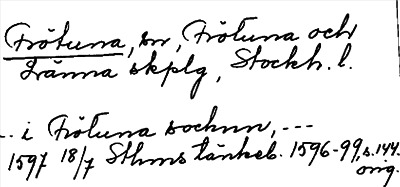 Frötuna, sn, Frötuna och
Länna skplg, Stockh. l.
.. i Frötuna sochnn, ---
1597 18/7 Sthms tänkeb. 1596-99, s. 144.
orig.